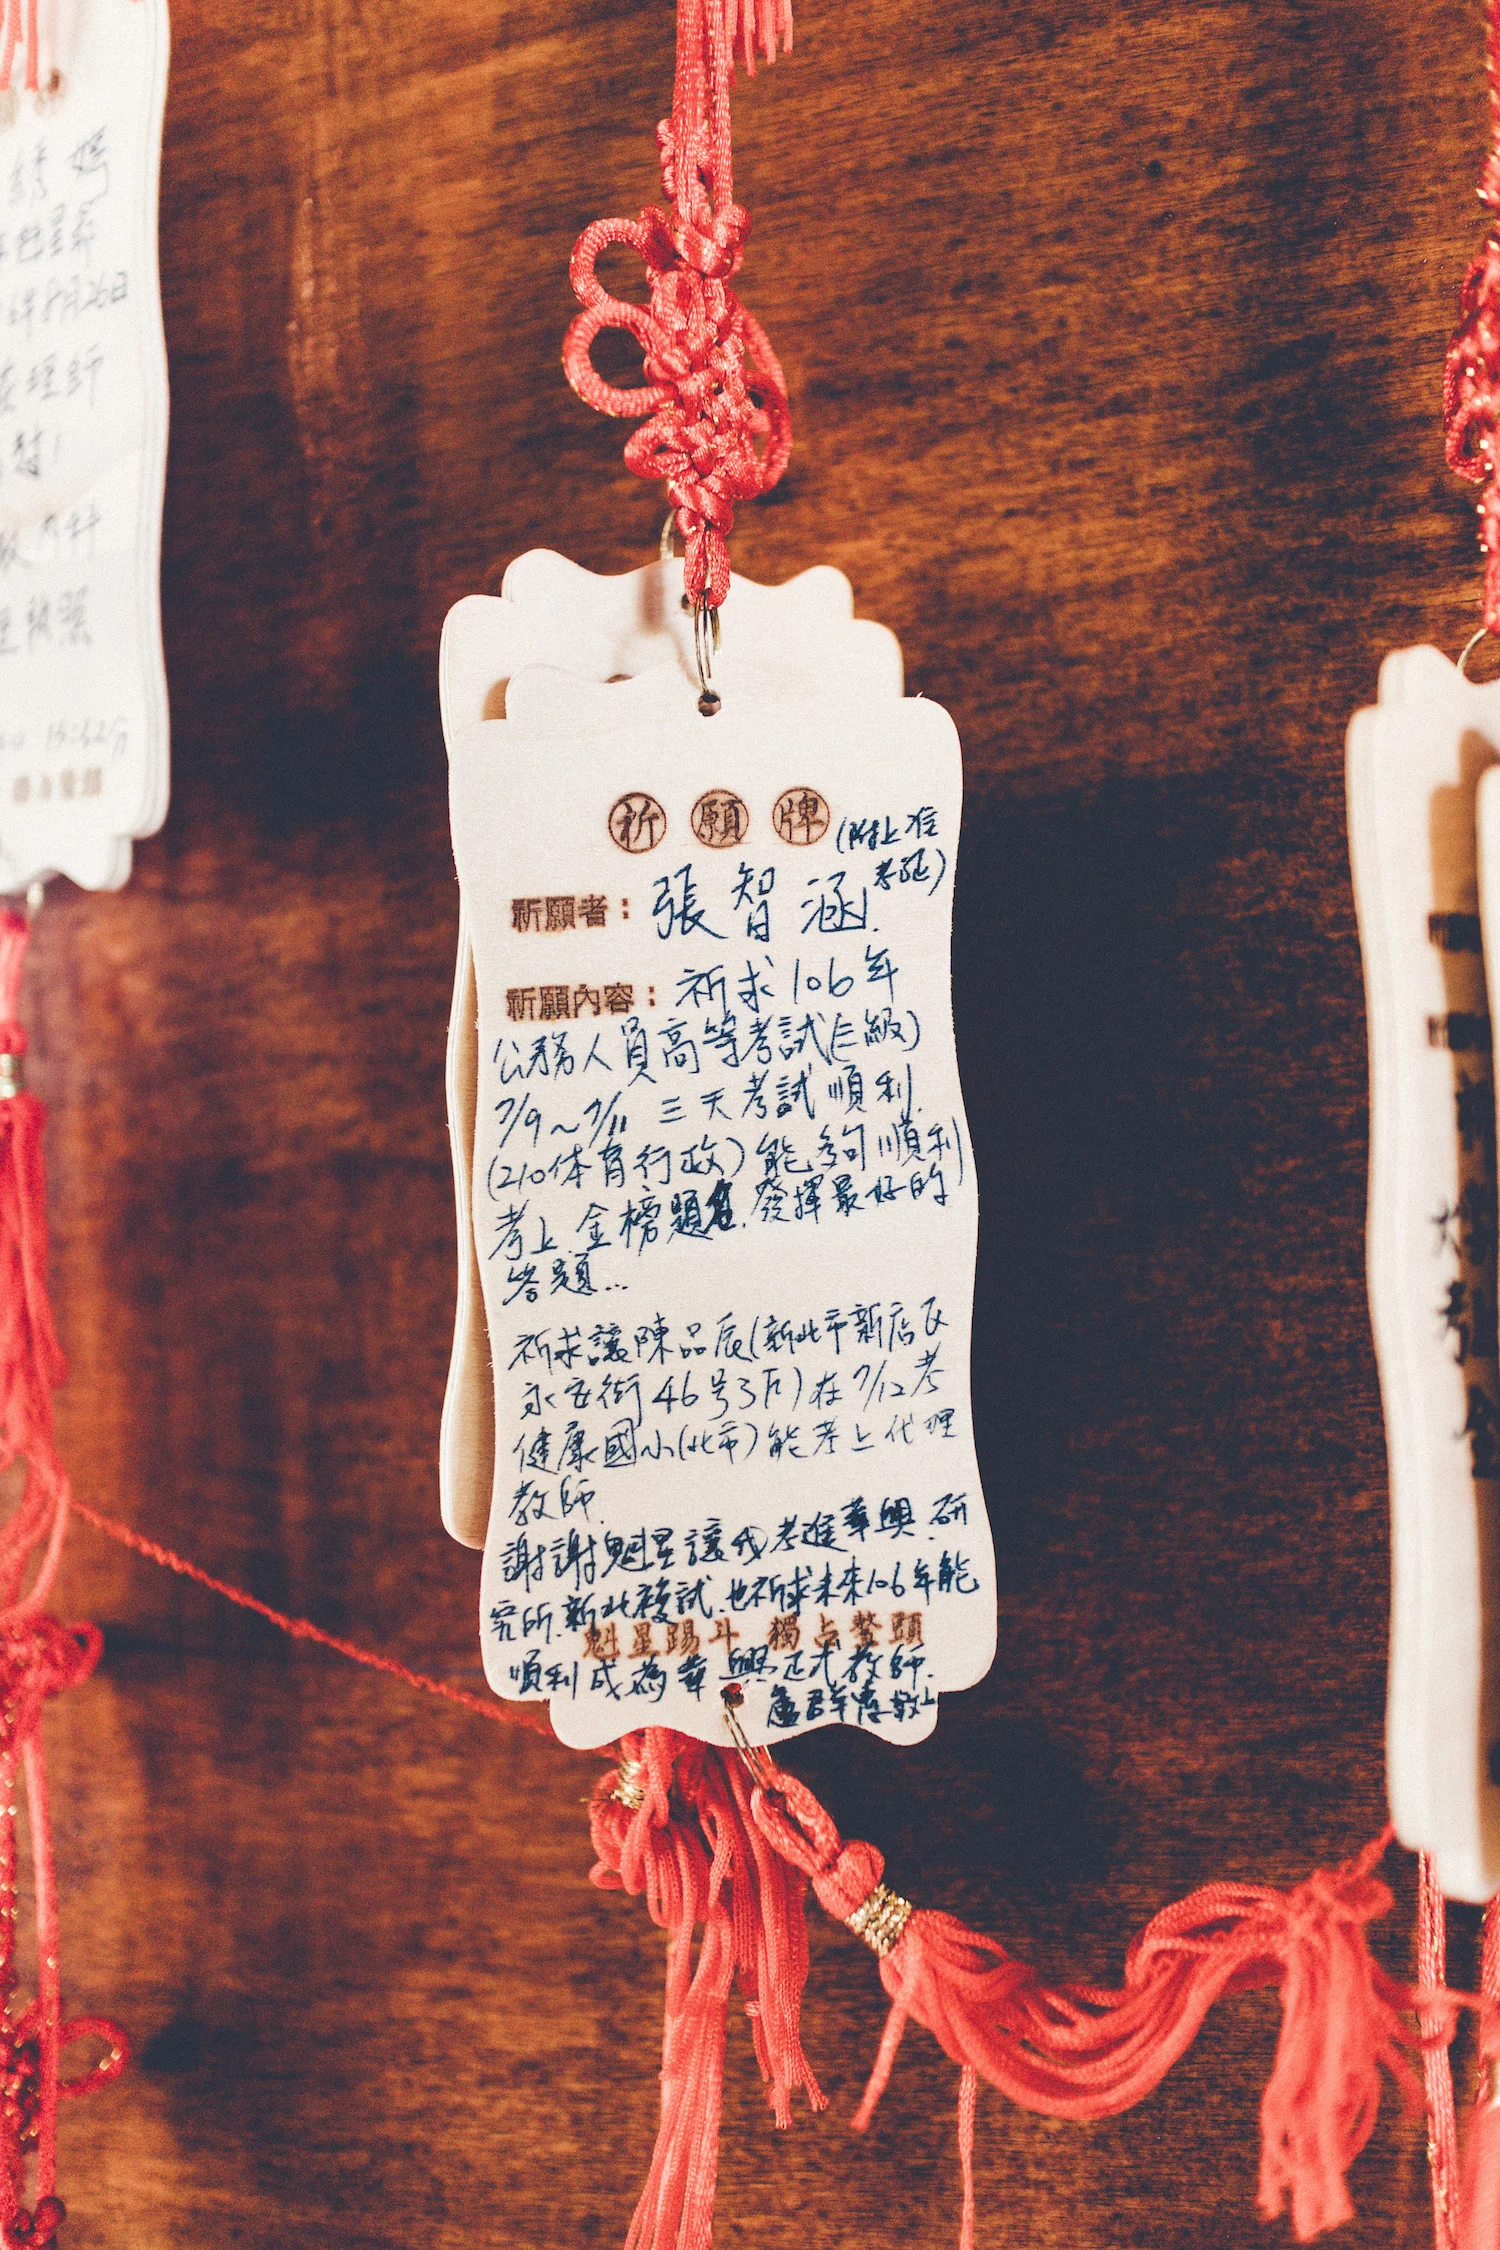 綉 嫣
年8月26日
理師
照
祈 願 牌 (附上准
考証)
祈願者：張智涵.
祈願內容：祈求106年
公務人員高等考試(三級)
7/9~7/11 三天考試順利.
(210体育行政)能夠順利
考上.金榜題名.發揮最好的
答題...
祈求讓陳品辰(新北市新店区
永安街46号3F)在7/12考
健康國小(北市)能考上代理
教師.
謝謝魁星讓我考進華興.研
究所.新北複試.也祈求未來106年能
魁星踢斗 獨占鰲頭
順利成為華興正式教師.
盧群 敬上